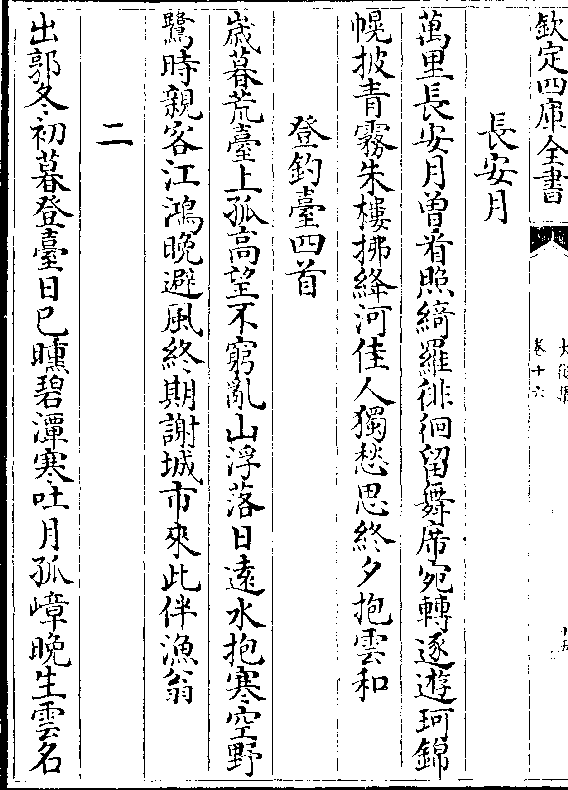 欽定四庫全書
卷十六
長安月
萬里長安月曽看照綺羅徘徊留舞席宛轉逐遊珂錦
幌披青霧朱樓拂絳河佳人獨愁思終夕抱雲和
登釣臺四首
歳暮荒臺上孤高望不窮亂山浮落日逺水抱寒空野
鷺時親客江鴻晩避風終期謝城市來此伴漁翁
二
出郭冬初暮登臺日已曛碧潭寒吐月孤嶂晩生雲名